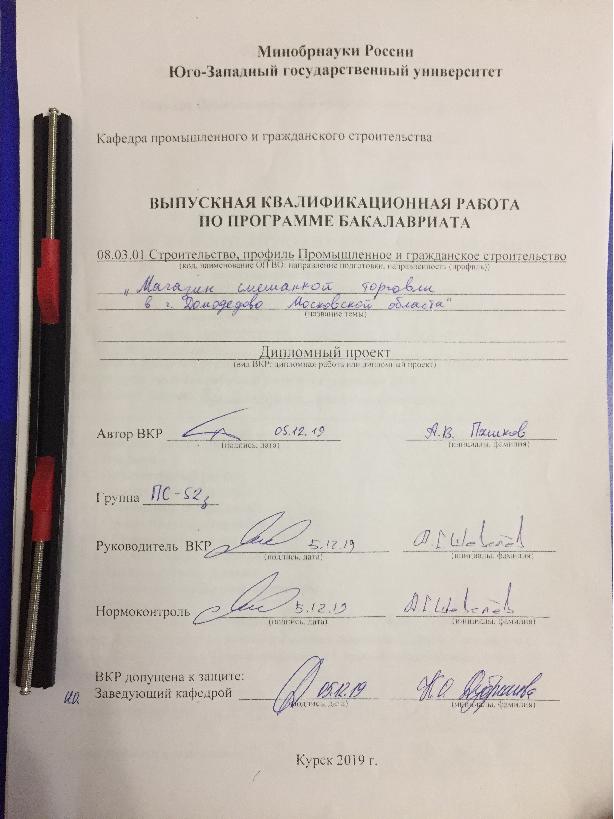 Минобрнауки России
Юго-Западный государственный университет
Кафедра промышленного и гражданского строительства
ВЫПУСКНАЯ КВАЛИФИКАЦИОННАЯ РАБОТА
ПО ПРОГРАММЕ БАКАЛАВРИАТА
08.03.01 Строительство, профиль Промышленное и гражданское строительство
(код, наименование ОП ВО: направление подготовки, направленность (профиль))
„Магазин смешанной торговли
в г. Домодедово Московской области"
(название темы)
Дипломный проект
(вид ВКР: дипломная работа или дипломный проект)
Автор ВКР 05.12.19 А.В.
(подпись, дата) (инициалы, фамилия)
Группа ПС-52з
Руководитель ВКР 5.12.19
(подпись, дата) (инициалы, фамилия)
Нормоконтроль 5.12.19
(подпись, дата) (инициалы, фамилия)
ВКР допущена к защите:
и.о. Заведующий кафедрой 05.12.19
(подпись, дата) (инициалы, фамилия)
Курск 2019 г.